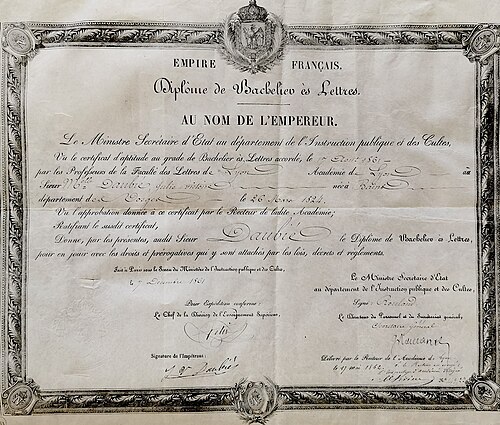 EMPIRE FRANÇAIS.
Diplôme de Bachelier ès Lettres.
AU NOM DE L'EMPEREUR.
Le Ministre Secrétaire d'Etat au département de l'Instruction publique et des Cultes,
Vu le certificat d'aptitude au grade de Bachelier ès Lettres accordé, le 1861
par les Professeurs de la Faculté des Lettres de Lyon Académie de Lyon au
Sieur Daubié Julie née à
département des Vosges le 26 Mars 1824
Vu l'approbation donnée à ce certificat par le Recteur de ladite Académie;
Ratifiant le susdit certificat,
Donne, par les présentes, audit Sieur Daubié le Diplôme de Bachelier ès Lettres,
pour en jouir avec les droits et prérogatives qui y sont attachés par les lois, décrets et règlements.
Fait à Paris sous le Sceau du Ministère de l'Instruction publique et des Cultes,
Le Ministre Secrétaire d'Etat
au département de l'Instruction publique et des Cultes,
Signé: Rouland
Pour Expédition conforme:
Le Chef de la Division de l'Enseignement Supérieur,
Le Directeur du Personnel et du Secrétariat général,
Secrétaire général
Signature de l'Impétrant:
Daubié
Délivré par le Recteur de l'Académie de Lyon
le 17 mai 1862